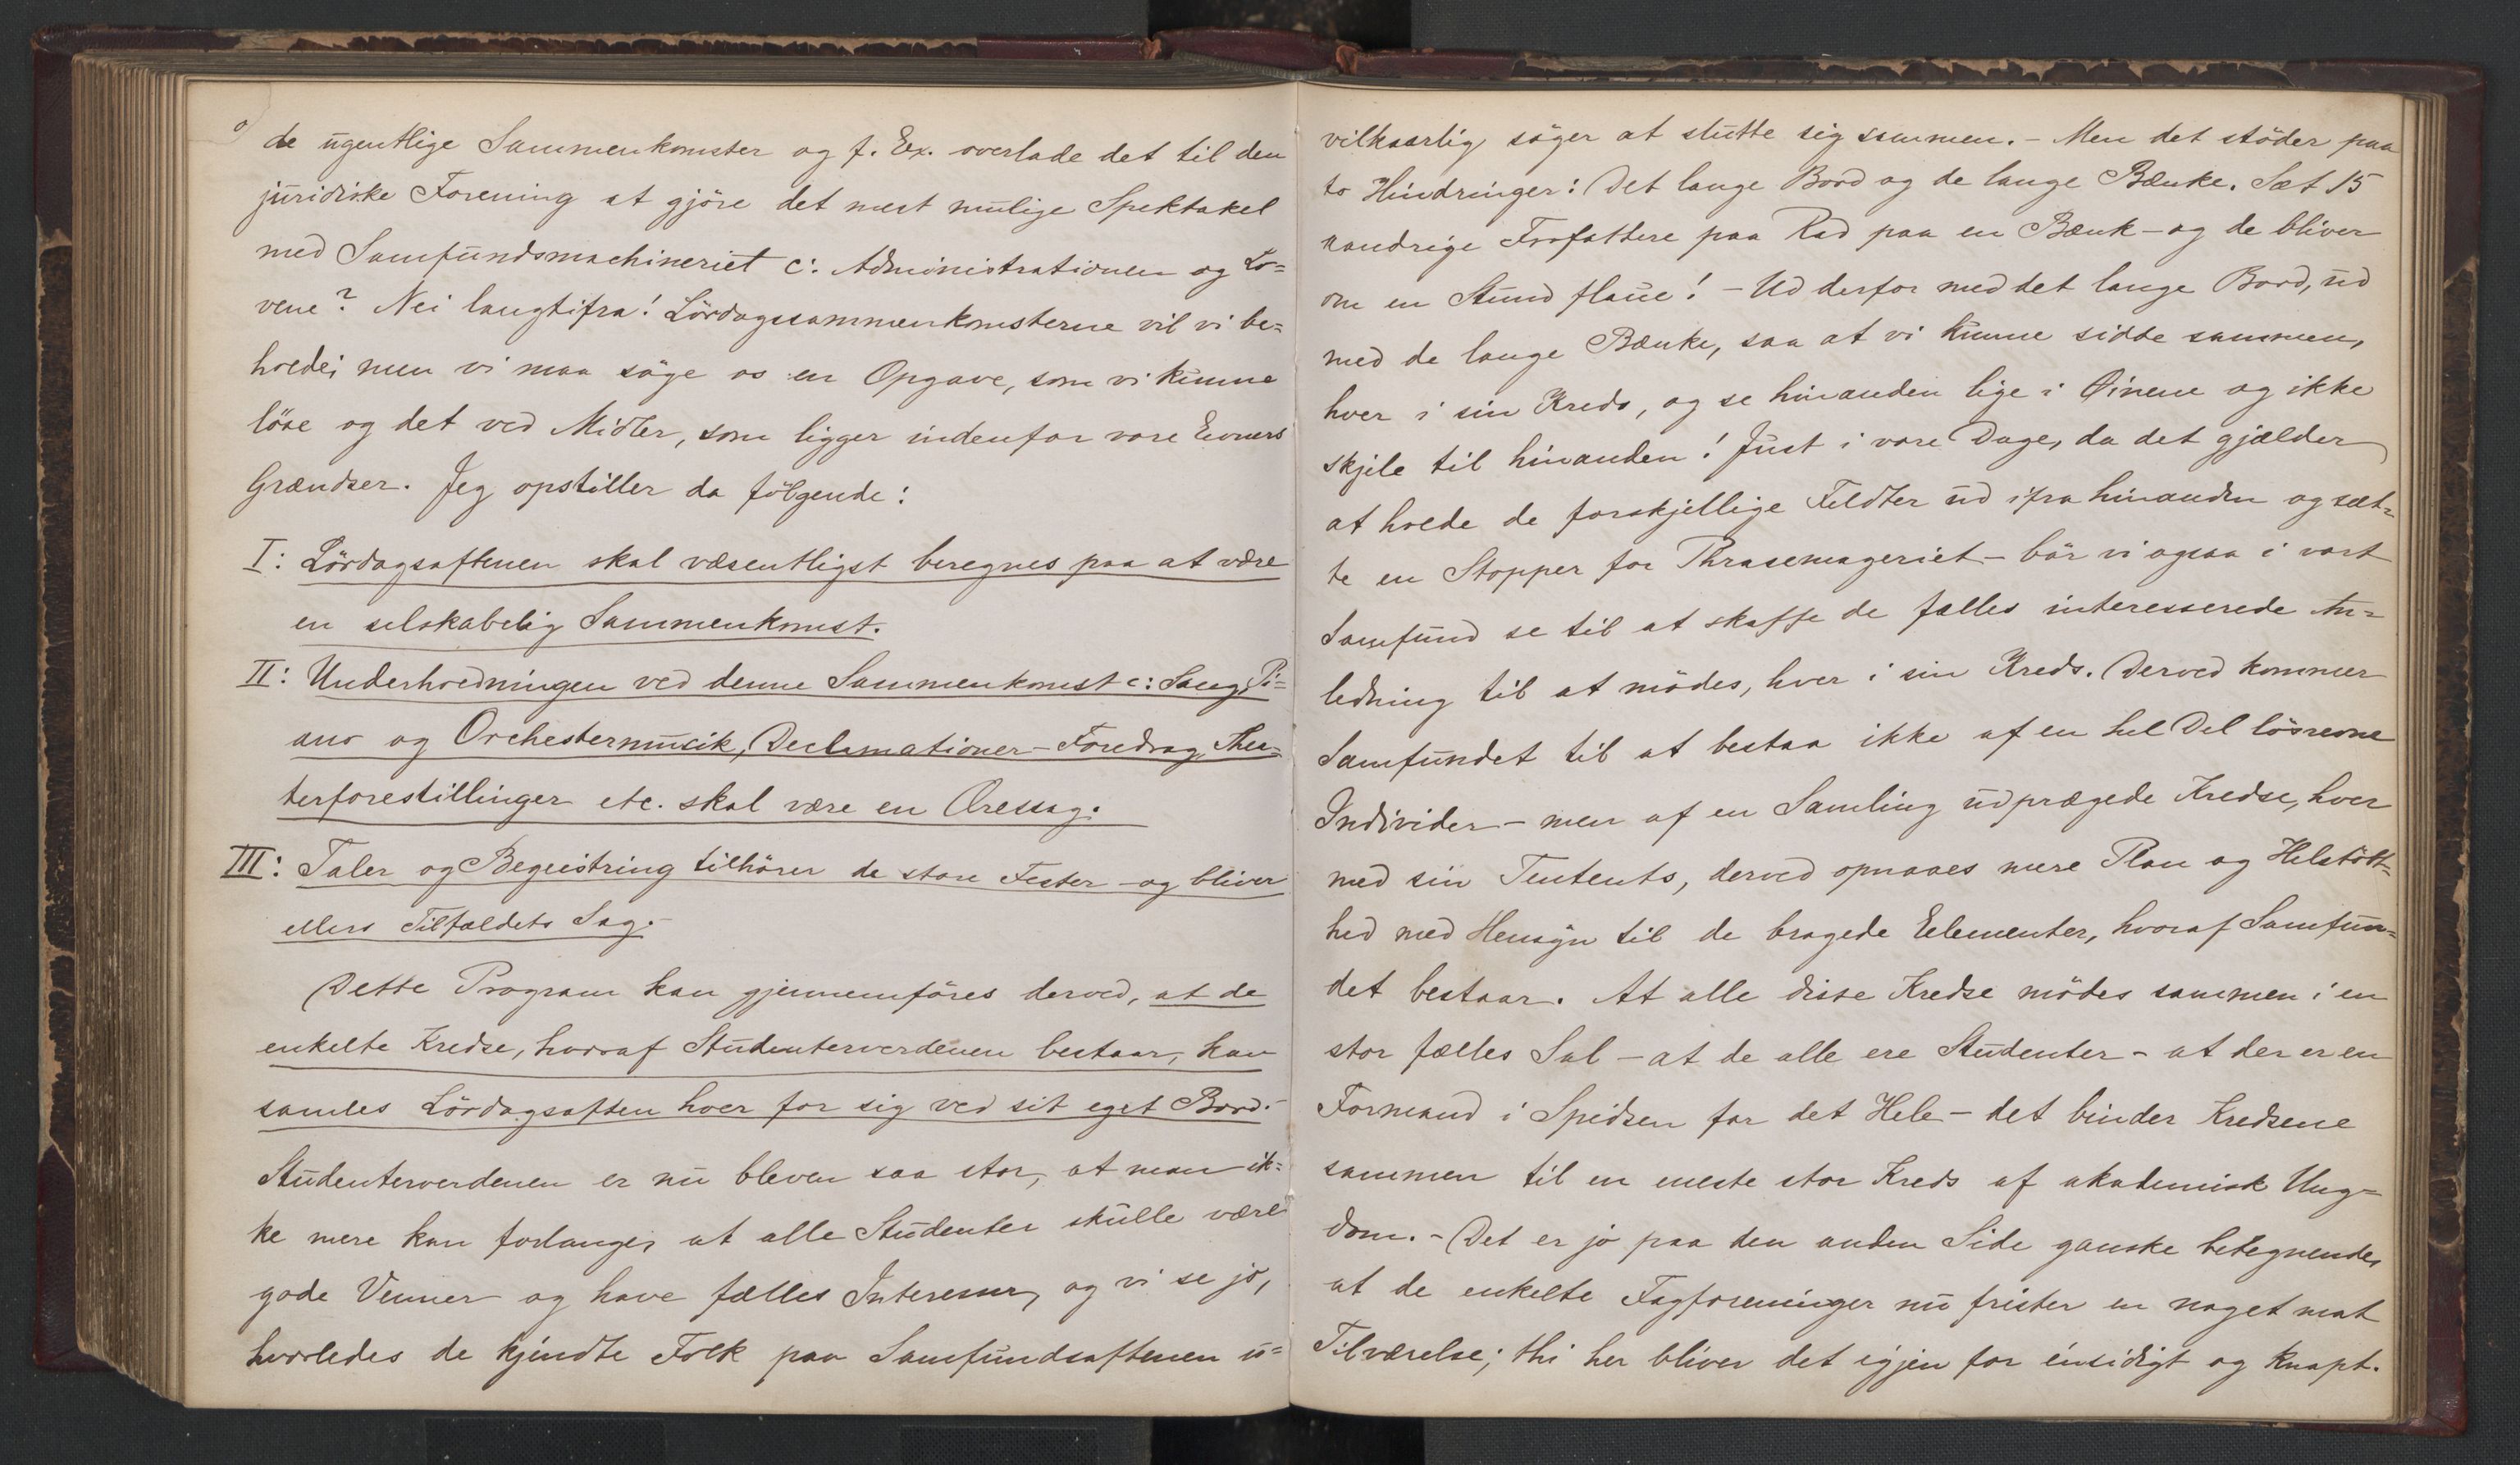 de ugentlige Sammenkomster og f. Ex. overlade det til den
juridiske Forening at gjöre det mest mulige Spektakel
med Samfundsmachineriet ɔ: Administrationen og Lo=
vene? Nei langtifra! Lördagssammenkomsterne vil vi be=
holde; men vi maa söge os en Opgave, som vi kunne
löse og det ved Midler, som ligger indenfor vore Evners
Grændser. Jeg opstiller da fölgende:
I: Lördagsaftenen skal væsentligst beregnes paa at være
en selskabelig Sammenkomst.
II: Underholdningen ved denne Sammenkomst ɔ: Sang, Pi=
ano og Orchestermusik, Declamationer – Foredrag, Thea=
terforestillinger etc. skal være en Æressag.
III: Taler og Begeistring tilhörer de store Fester – og bliver
ellers Tilfældets Sag. –
Dette Program kan gjennemföres derved, at de
enkelte Kredse, hvoraf Studenterverdenen bestaar, kan
samles Lördagsaften hver for sig ved sit eget Bord. –
Studenterverdenen er nu bleven saa stor, at man ik=
ke mere kan forlange, at alle Studenter skulle være
gode Venner og have fælles Interesser, og vi se jo,
hvorledes de kjendte Folk paa Samfundsaftenen u=
vilkaarlig söger at slutte sig sammen. – Men det stöder paa
to Hindringer: Det lange Bord og de lange Bænke. Sæt 15
aandrige Forfattere paa Rad paa en Bænk – og de bliver
om en Stund flaue! – Ud derfor med det lange Bord, ud
med de lange Bænke, saa at vi kunne sidde sammen,
hver i sin Kreds, og se hinanden lige i Øinene og ikke
skjele til hinanden! Just i vore Dage, da det gjælder
at holde de forskjellige Feldter ud ifra hinanden og sæt=
te en Stopper for Phrasemageriet – bör vi ogsaa i vort
Samfund se til at skaffe de fælles interesserede An=
ledning til at mödes, hver i sin Kreds. Derved kommer
Samfundet til at bestaa ikke af en hel Del lösrevne
Individer – men af en Samling udprægede Kredse, hver
med sin Tentents, derved opnaaes mere Plan og Helstöbt=
hed med Hensyn til de brogede Elementer, hvoraf Samfun=
det bestaar. At alle disse Kredse mödes sammen i en
stor fælles Sal – at de alle ere Studenter – at der er en
Formand i Spidsen for det Hele – det binder Kredsene
sammen til en eneste stor Kreds af akademisk Ung=
dom. – Det er jo paa den anden Side ganske betegnende,
at de enkelte Fagforeninger nu frister en noget mat
Tilværelse; thi her bliver det igjen for énsidigt og knapt.